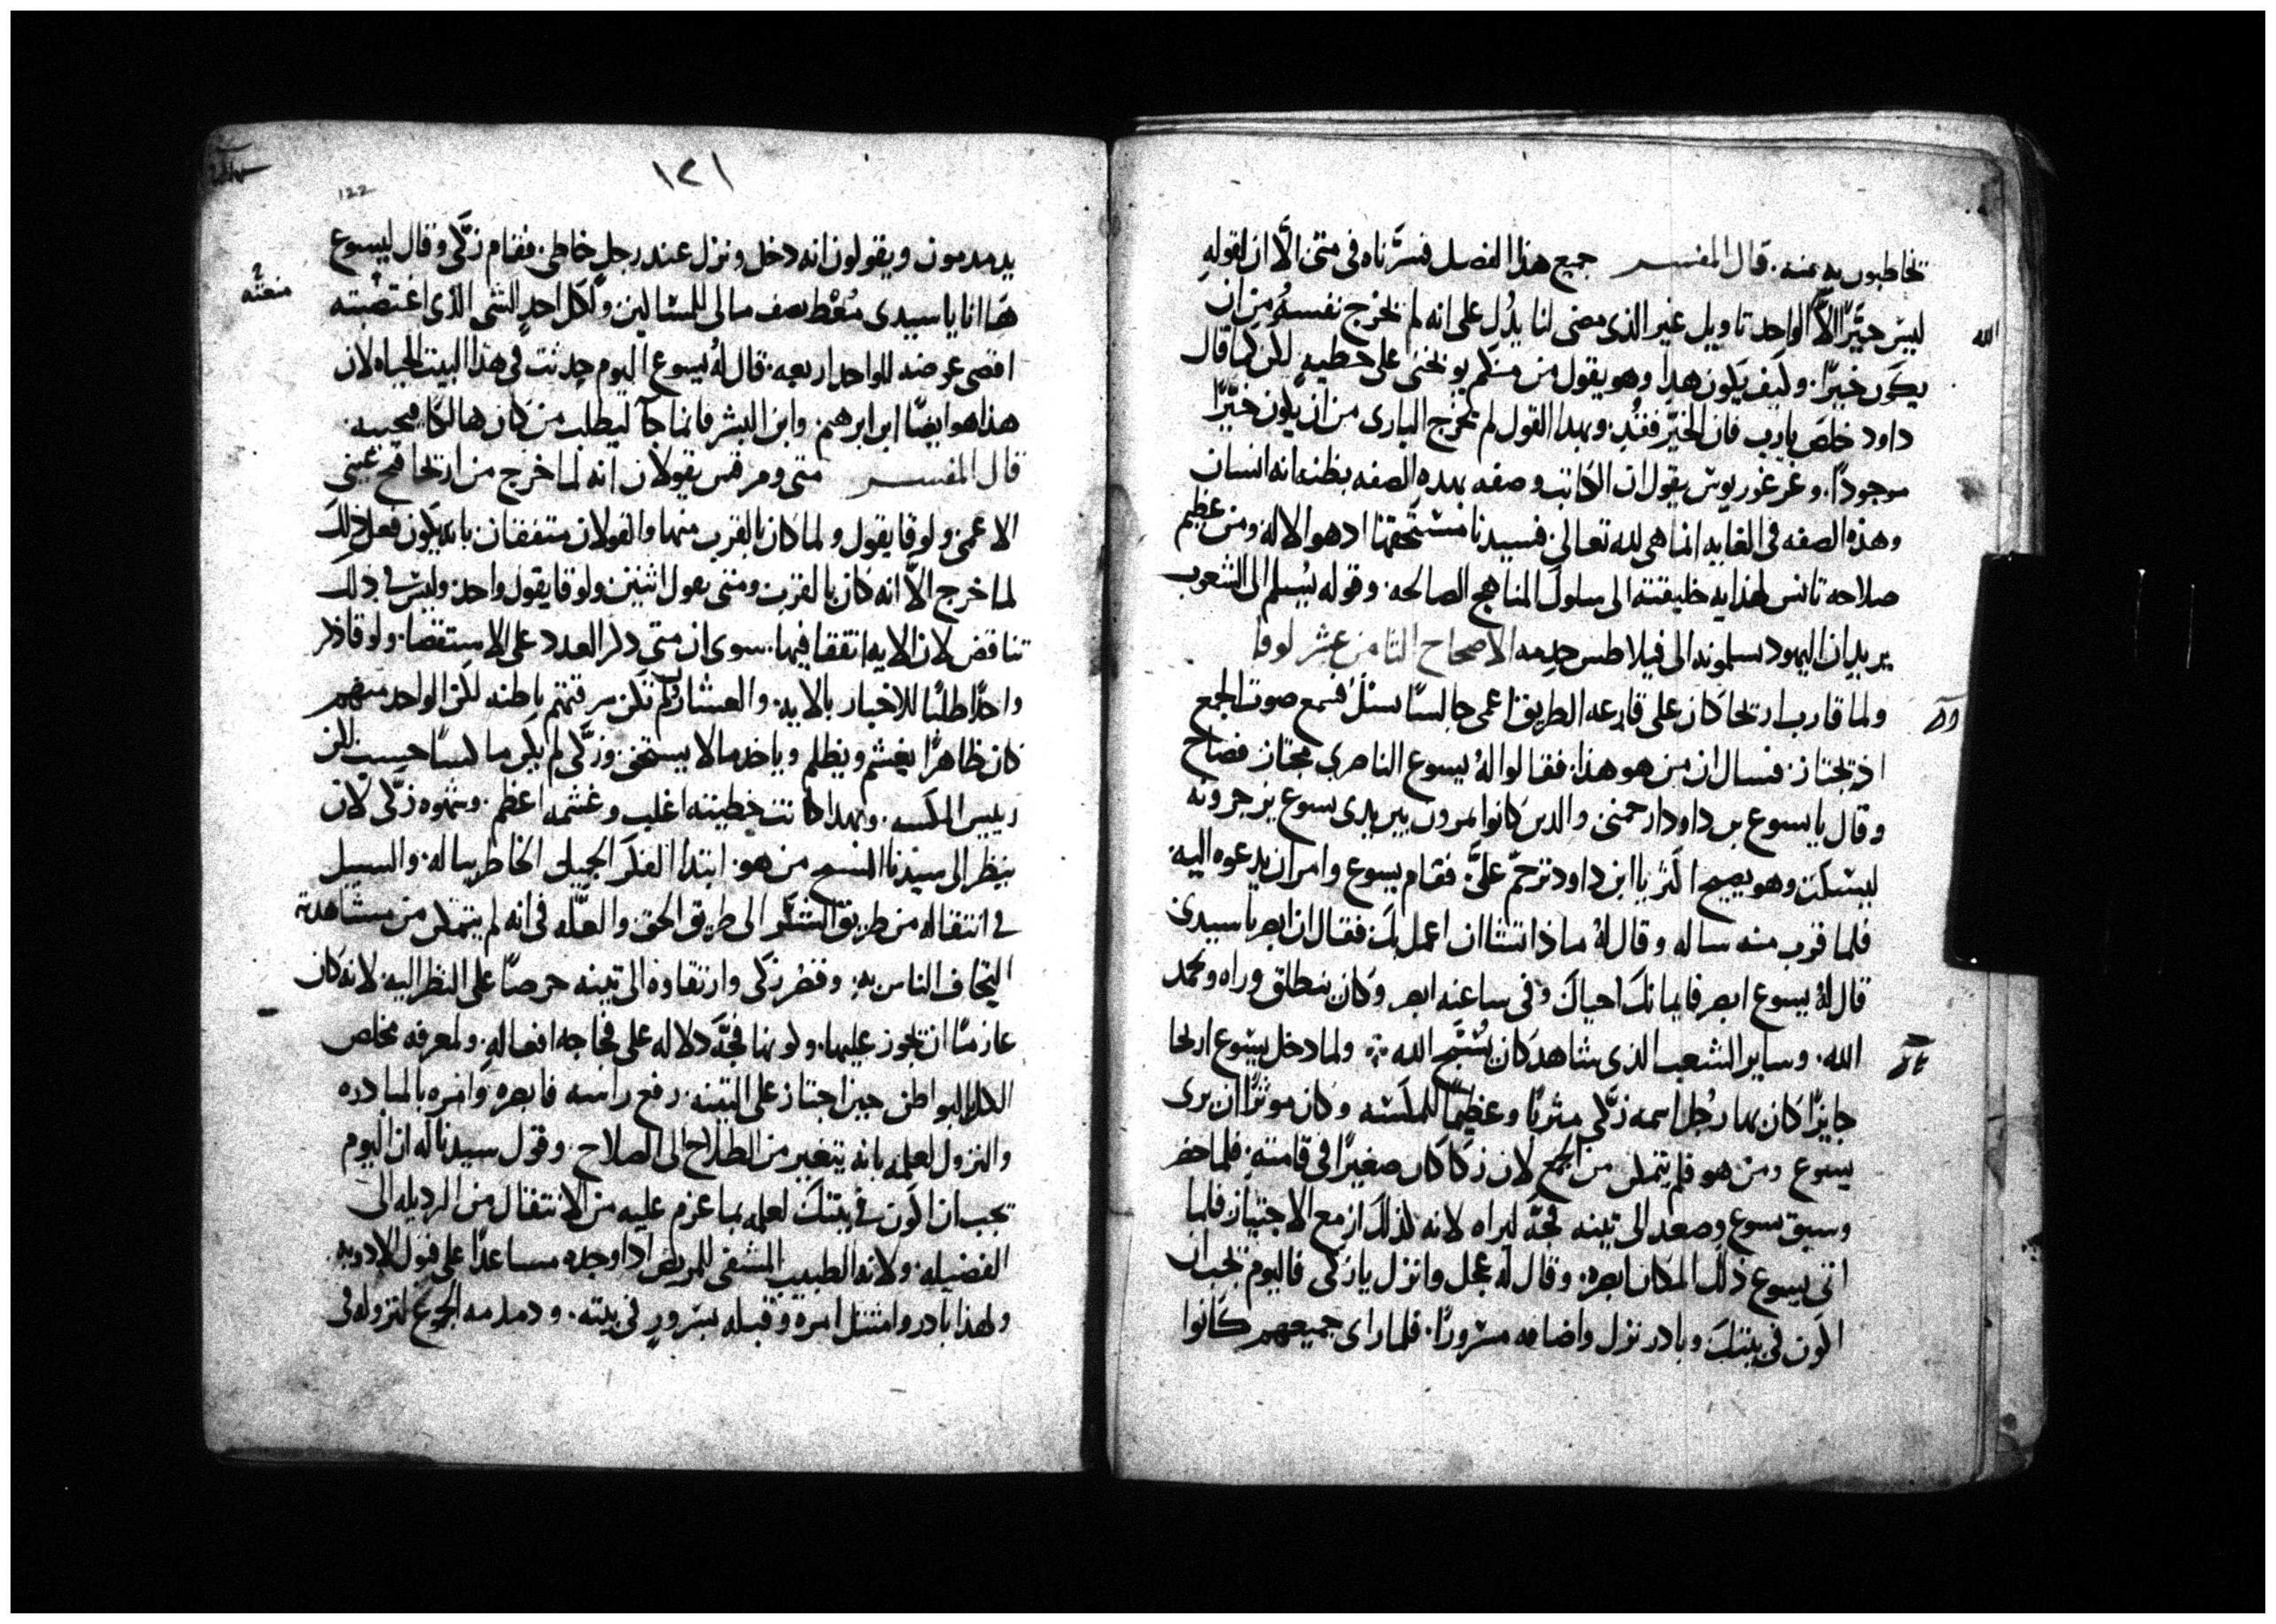 يخاطبون به عنه. قال المفسر جميع هذا الفصل فسرناه في متى الا ان لقوله
الله
ليس خيّرًا الاّ الواحد تاويل غير الذي مضى لنا يدُل على انه لم يخرج نفسهُ من ان
يكون خيرًا. وكيف يكون هدا وهو يقول من منكم يوبخني على خطيه لكن كما قال
داود خلص يارب فان الخيّر فنُد. وبهدا القول لم يخرج الباري من ان يكون خيّرًا
موجودًا. وغرغوريوس يقول ان الكاتب وصفه بهده الصفه بظنه انه انسان
وهذه الصفه في الغايه انما هي لله تعالى. فسيدنا مستحقها اد هو الاله ومن عظم
صلاحه تانس لهدايه خليقته الى سلوك المناهج الصالحه. وقوله يُسلم الى الشعوب
يريد ان اليهود يسلمونه الى فيلاطس وجدمه الاصحاح الثامن عشر لوقا
ولما قارب اريحا كان على قارعه الطريق اعمى جالسًا يسئل فسمع صوت الجمع
اذ يجتاز. فسال ان من هو هذا. فقالوا لهُ يسوع الناصري مجتاز فصاح
وقال يا يسوع بن داود ارحمني والدين كانوا يمرون بين يدي يسوع يزجرونه
ليسكت وهو يصيح اكثر يا ابن داود ترحّم عليَّ. فقام يسوع وامر ان يدعوه اليه.
فلما قرب منه ساله وقال لهُ ماذا تشا ان اعمل بك فقال ان ابصر يا سيدي
قال لهُ يسوع ابصر فايمانك احياك وفي ساعته ابصر وكان ينطلق وراه ويمجد
الله. وساير الشعب الذي شاهد كان يُسبّح الله ولما دخل يسوع اريحا
جايزًا كان بها رجُل اسمه زكّى مثريًا وعظيمًا للمكسه وكان موثرًا ان يرى
يسوع ومن هو فلم يتمكن من الجمع لان زكا كان صغيرًا في قامته. فلما حضر
وسبق يسوع وصعد الى تينه فجّه ليراه لانه كذلك ازمع الاجتياز فلما
اتى يسوع ذلك المكان ابصره. وقال له عجل وانزل يا زكى فاليوم يجب ان
اكون في بيتك وبادر نزل واضافه مسرورًا. فلما راى جميعهم كانوا
١٢١
122
يدمدمون ويقولون انه دخل ونزل عند رجل خاطى. فقام زكّى وقال ليسوع
هَا انا يا سيدي مُعْط نصف مالي للمساكين ولكل احدٍ الشي الذي اغتصبته
اقصى عوضه للواحد اربعه. قال لهُ يسوع اليوم حدثت في هذا البيت الحياه لان
هذا هو ايضًا ابن ابرهيم. وابن البشر فانما جآ ليطلب من كان هالكا فيحييه
قال المفسر متى ومرقس يقولان انه لما خرج من اريحا فتح عيني
الاعمى ولوقا يقول ولما كان بالقرب منها والقولان متفقان بانه يكون فعل ذلك
لما خرج الاّ انه كان بالقرب ومتى يقول اثنين ولوقا يقول واحد وليس في ذلك
تناقض لان الايه اتفقا فيها. سوى ان متى دكر العدد على الاستقصا. ولوقا ذكر
واحدًا طلبًا للاخبار بالايه. والعشارُ لم تكن سرقتهم باطنه لكن الواحد منهم
كان ظاهرًا يغشم ويظلم وياخد ما لا يستحق. وزكّى لم يكن ماكسًا حسب لكن
رييس المكسه. وبهدا كانت خطيته اغلب وغشمه اعظم. وشهوه زكّى لان
ينظر الى سيدنا المسيح من هو. ابتدا الفكر الجميل الخاطر بباله. والسبيل
في انتقاله من طريق الشر الى طريق الحق والعلّه في انه لم يتمكن من مشاهدته
التحاف الناس به. وقصَر زكى وارتقاوه الى تينه حرصًا على النظر اليه لانه كان
عازمًا ان يجوز عليها. وكونها فجّه دلاله على فجاجه افعاله. ولمعرفه مخلص
الكل بالبواطن حين اجتاز على التينه. رفع راسه فابصره وامره بالمبادره
والنزول لعلمه بانه يتغير من الطلاح الى الصلاح. وقول سيدنا له ان اليوم
يجب ان اكون في بيتك لعلمه بما عزم عليه من الانتقال من الرديله الى
الفضيله. ولانه الطبيب المشفى للمريض ادا وجده مساعدًا على قبول الادويه.
ولهذا بادر وامتثل امره وقبله بسرورٍ في بيته. ودمدمه الجموع لنزوله في